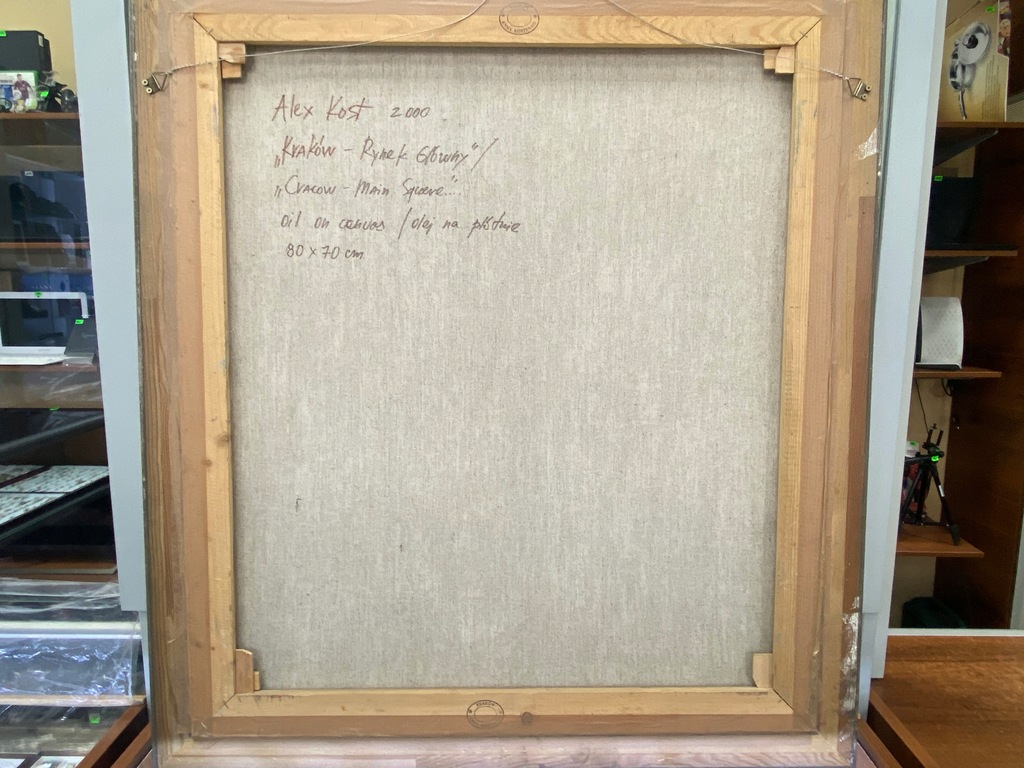 Alex Kost 2000
„Kraków - Rynek Główny"/
„Cracow - Main Square"
oil on canvas / olej na płótnie
80 x 70 cm
KRAKÓW